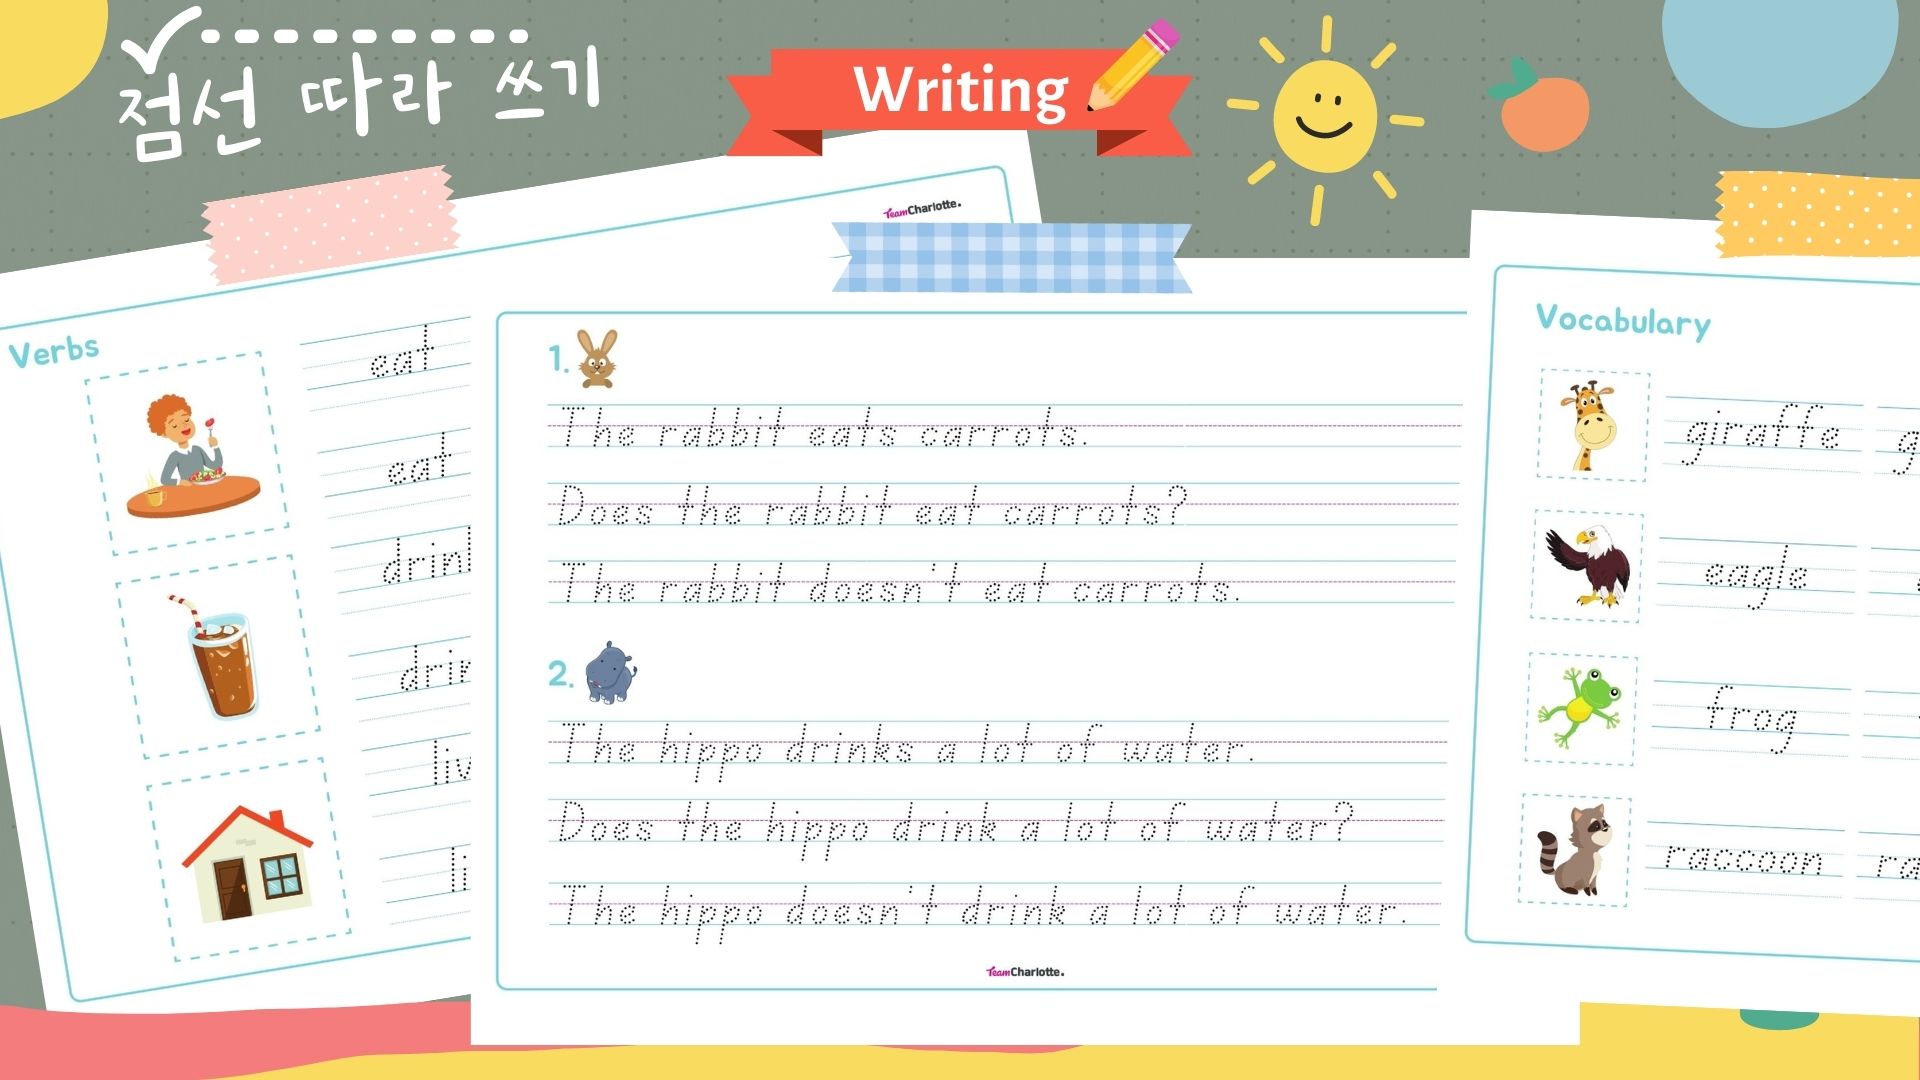 점선 따라 쓰기
Writing
TeamCharlotte.
Verbs
eat
eat
1.
The rabbit eats carrots.
Does the rabbit eat carrots?
The rabbit doesn't eat carrots.
2.
The hippo drinks a lot of water.
Does the hippo drink a lot of water?
The hippo doesn't drink a lot of water.
TeamCharlotte.
Vocabulary
giraffe
eagle
frog
raccoon